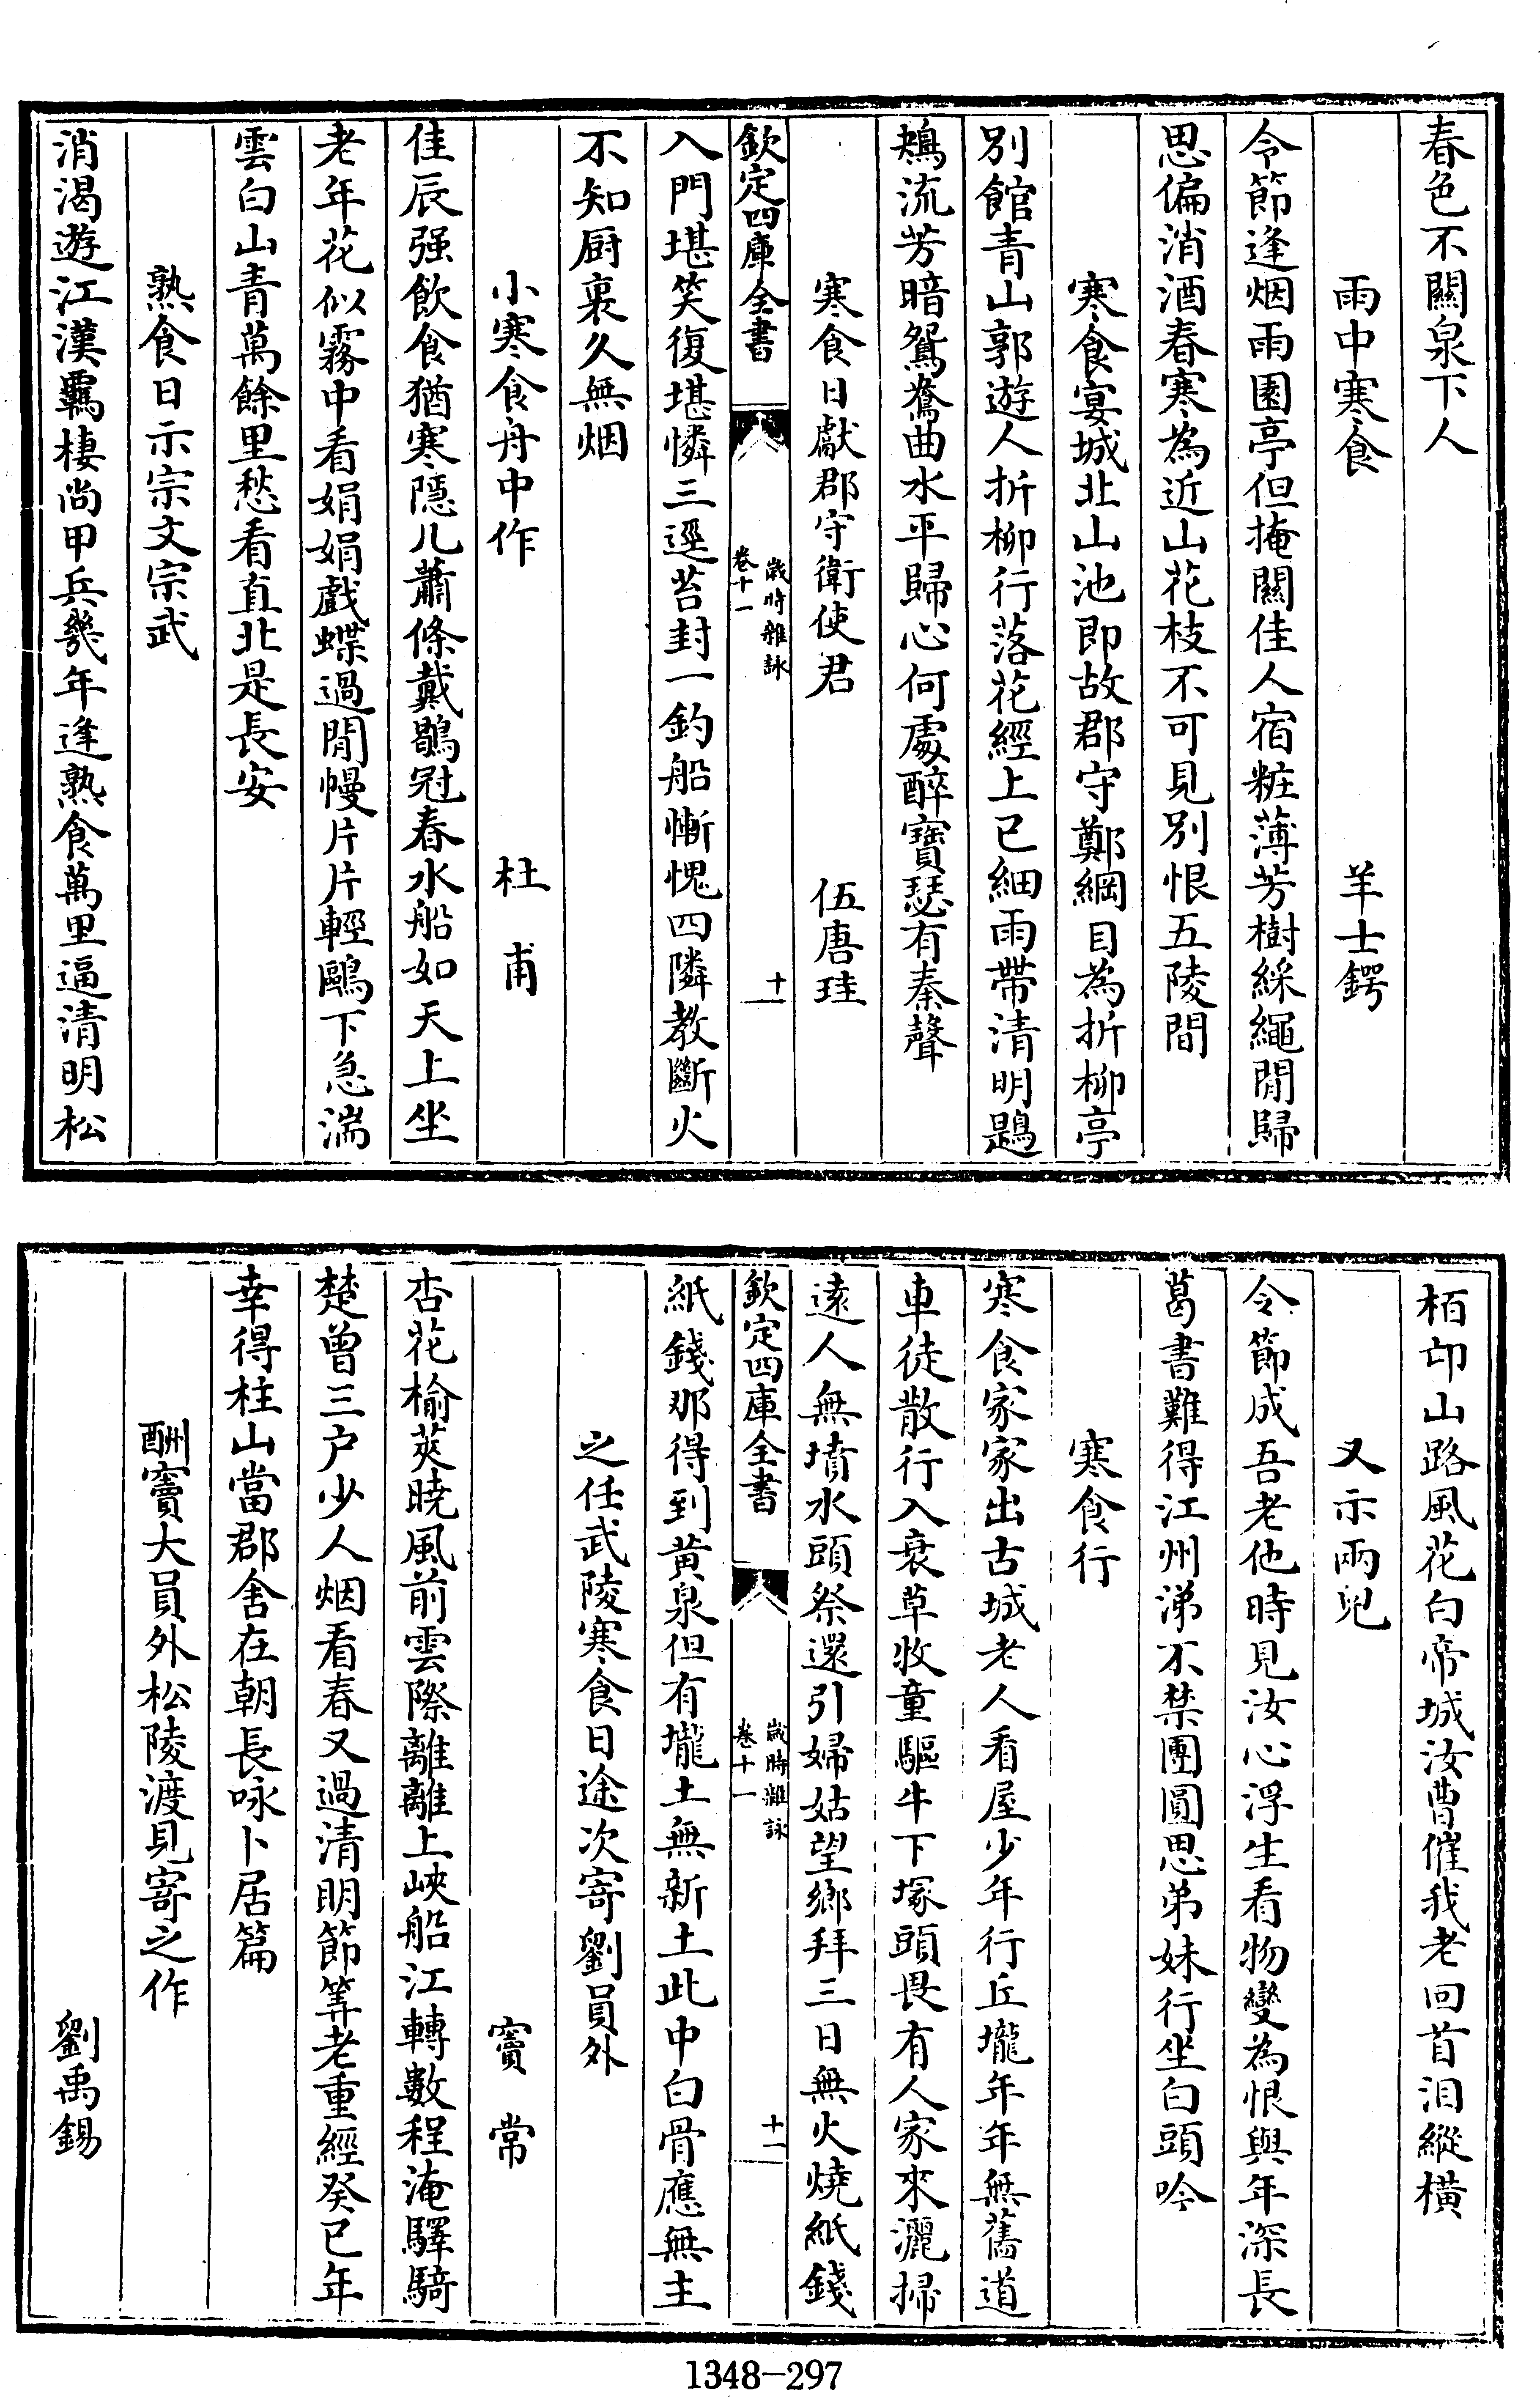 春色不關泉下人
雨中寒食　羊士鍔
令節逢烟雨園亭但掩關佳人宿粧薄芳樹綵繩閒歸
思偏消酒春寒為近山花枝不可見别恨五陵間
寒食宴城北山池即故郡守鄭綱目為折柳亭
别館青山郭遊人折柳行落花經上巳細雨帶清明鶗
鴂流芳暗鴛鴦曲水平歸心何處醉寶瑟有秦聲
寒食日獻郡守衛使君　伍唐珪
欽定四庫全書
歲時雜詠
卷十一
十
入門堪笑復堪憐三逕苔封一釣船慚愧四隣教斷火
不知厨裏久無烟
小寒食舟中作　杜甫
佳辰强飲食猶寒隱几蕭條戴鶡冠春水船如天上坐
老年花似霧中看娟娟戲蝶過閒幔片片輕鷗下急湍
雲白山青萬餘里愁看直北是長安
熟食日示宗文宗武
消渴遊江漢羈棲尚甲兵幾年逢熟食萬里逼清明松
栢邙山路風花白帝城汝曹催我老回首淚縱橫
又示兩兒
令節成吾老他時見汝心浮生看物變為恨與年深長
葛書難得江州涕不禁團圓思弟妹行坐白頭吟
寒食行
寒食家家出古城老人看屋少年行丘壠年年無舊道
車徒散行入衰草牧童驅牛下塚頭畏有人家來灑掃
遠人無墳水頭祭還引婦姑望鄉拜三日無火燒紙錢
欽定四庫全書
歲時雜詠
卷十一
十一
紙錢那得到黃泉但有壠土無新土此中白骨應無主
之任武陵寒食日途次寄劉員外
竇常
杏花榆莢曉風前雲際離離上峽船江轉數程淹驛騎
楚曾三户少人烟看春又過清明節筭老重經癸巳年
幸得柱山當郡舍在朝長咏卜居篇
酬竇大員外松陵渡見寄之作
劉禹錫
1348-297